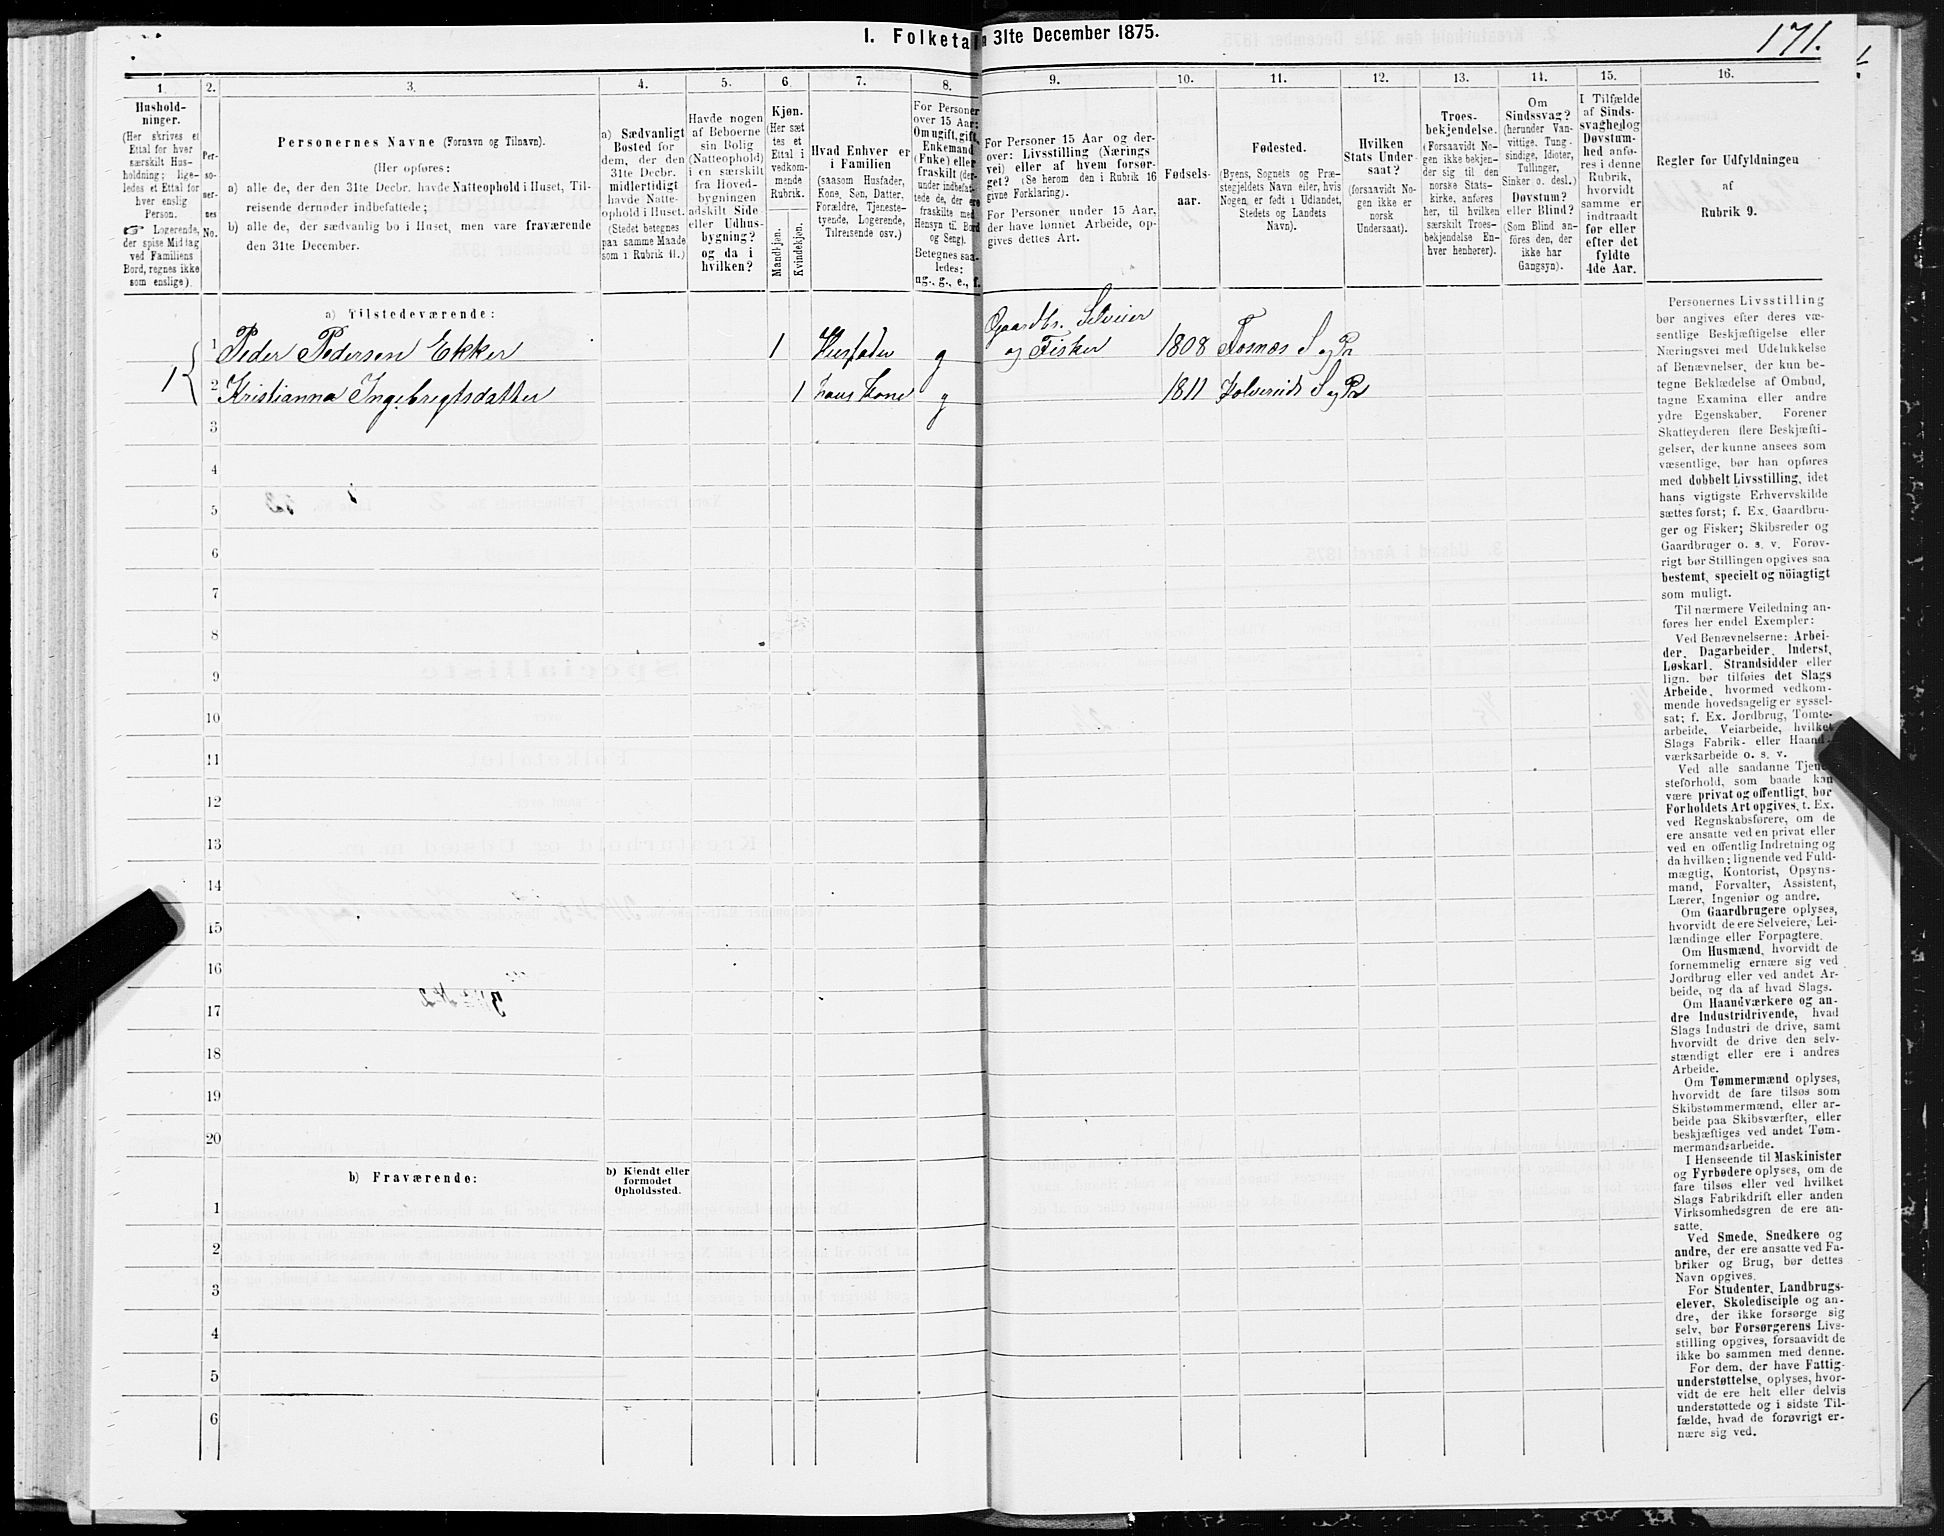 I. Folketa n 31te December 1875.
171.
1.
Hushold-
ninger.
(Her skrives et
Ettal for hver
særskilt Hus-
holdning; lige-
ledes et Ettal for
hver enslig
Person.
☞ Logerende,
der spise Middag
ved Familiens
Bord, regnes ikke
som enslige).
2.
Per-
so-
ner-
nes
No.
3.
Personernes Navne (Fornavn og Tilnavn).
(Her opføres:
a) alle de, der den 31te Decbr. havde Natteophold i Huset, Til-
reisende derunder indbefattede;
b) alle de, der sædvanlig bo i Huset, men vare fraværende
den 31te December.
4.
a) Sædvanligt
Bosted for
dem, der den
31te Decbr.
midlertidigt
havde Natte-
ophold i Huset.
(Stedet betegnes
paa samme Maade
som i Rubrik 11.)
5.
Havde nogen
af Beboerne
sin Bolig
(Natteophold)
i en særskilt
fra Hoved-
bygningen
adskilt Side-
eller Udhus-
bygning?
og da i
hvilken?
6.
Kjøn.
(Her sæt-
tes et
Ettal i
vedkom-
mende
Rubrik.
Mandkjøn.
Kvindekjøn.
7.
Hvad Enhver er
i Familien
(saasom Husfader,
Kone, Søn, Datter,
Forældre, Tjeneste-
tyende, Logerende,
Tilreisende osv.)
8.
For Personer
over 15 Aar:
Om ugift, gift,
Enkemand
(Enke) eller
fraskilt (der-
under indbefat-
tede de, der ere
fraskilte med
Hensyn til Bord
og Seng).
Betegnes saa-
ledes:
ug., g., e., f.
9.
For Personer 15 Aar og der-
over: Livsstilling (Nærings-
vei) eller af hvem forsør-
get? (Se herom den i Rubrik 16
givne Forklaring).
For Personer under 15 Aar,
der have lønnet Arbeide, op-
gives dettes Art.
10.
Fødsels-
aar.
11.
Fødested.
(Byens, Sognets og Præ-
stegjeldets Navn eller, hvis
Nogen er født i Udlandet,
Stedets og Landets
Navn).
12.
Hvilken
Stats Under-
saat?
(forsaavidt No-
gen ikke er
norsk
Undersaat).
13.
Troes-
bekjendelse.
(Forsaavidt No-
gen ikke bekjen-
der sig til den
norske Stats-
kirke, anføres
her, til hvilken
særskilt Troes-
bekjendelse En-
hver henhører).
11.
Om
Sindssvag?
(herunder Van-
vittige, Tung-
sindige, Idioter,
Tullinger,
Sinker o. desl.)
Døvstum?
eller Blind?
(Som Blind an-
føres den, der
ikke har
Gangsyn).
15.
I Tilfælde
af Sinds-
svaghed og
Døvstum-
hed anfø-
res i denne
Rubrik,
hvorvidt
samme er
indtraadt
før eller
efter det
fyldte
4de Aar.
16.
Regler for Udfyldningen
af
Rubrik 9.
a) Tilstedeværende:
1 1 Peder Pedersen Ekker 1 Husfader g Gaardbr. Selveier og Fisker 1808 Fosnæs S og Pr
2 Kristianna Ingebregtsdatter 1 hans Kone g 1811 Kolvereids S og Pr
3
4
5
6
7
8
9
10
11
12
13
14
15
16
17
18
19
20
b) Fraværende:
b) Kjendt eller
formodet
Opholdssted.
1
2
3
4
5
6
Personernes Livsstilling
bør angives efter deres væ-
sentlige Beskjæftigelse eller
Næringsvei med Udelukkelse
af Benævnelser, der kun be-
tegne Beklædelse af Ombud,
tagne Examina eller andre
ydre Egenskaber. Forener
Skatteyderen flere Beskjæfti-
gelser, der kunne ansees som
væsentlige, bør han opføres
med dobbelt Livsstilling, idet
hans vigtigste Erhvervskilde
sættes først; f. Ex. Gaardbru-
ger og Fisker; Skibsreder og
Gaardbruger o. s. v. Forøv-
rigt bør Stillingen opgives saa
bestemt, specielt og nöiagtigt
som muligt.
Til nærmere Veiledning an-
føres her endel Exempler:
Ved Benævnelserne: Arbei-
der, Dagarbeider, Inderst,
Løskarl, Strandsidder eller
lign. bør tilføies det Slags
Arbeide, hvormed vedkom-
mende hovedsagelig er syssel-
sat; f. Ex. Jordbrug, Tomte-
arbeide, Veiarbeide, hvilket
Slags Fabrik- eller Haand-
værksarbeide o. s. v.
Ved alle saadanne Tjene-
steforhold, som baade kan
være privat og offentligt, bør
Forholdets Art opgives, t. Ex.
ved Regnskabsførere, om de
ere ansatte ved en privat eller
ved en offentlig Indretning og
da hvilken; lignende ved Fuld-
mægtig, Kontorist, Opsyns-
mand, Forvalter, Assistent,
Lærer, Ingeniør og andre.
Om Gaardbrugere oplyses,
hvorvidt de ere Selveiere, Lei-
lændinge eller Forpagtere.
Om Husmænd, hvorvidt de
fornemmelig ernære sig ved
Jordbrug eller ved andet Ar-
beide, og da af hvad Slags.
Om Haandværkere og an-
dre Industridrivende, hvad
Slags Industri de drive, samt
hvorvidt de drive den selv-
stændigt eller ere i andres
Arbeide.
Om Tømmermænd oplyses,
hvorvidt de fare tilsøs som
Skibstømmermænd, eller ar-
beide paa Skibsværfter, eller
beskjæftiges ved andet Tøm-
mermandsarbeide.
I Henseende til Maskinister
og Fyrbødere oplyses, om de
fare tilsøs eller ved hvilket
Slags Fabrikdrift eller anden
Virksomhedsgren de ere an-
satte.
Ved Smede, Snedkere og
andre, der ere ansatte ved Fa-
briker og Brug, bør dettes
Navn opgives.
For Studenter, Landbrugs-
elever, Skoledisciple og an-
dre, der ikke forsørge sig
selv, bør Forsørgerens Livs-
stilling opgives, forsaavidt de
ikke bo sammen med denne.
For dem, der have Fattig-
understøttelse, oplyses, hvor-
vidt de ere helt eller delvis
understøttede og i sidste Til-
fælde, hvad de forøvrigt er-
nære sig ved.